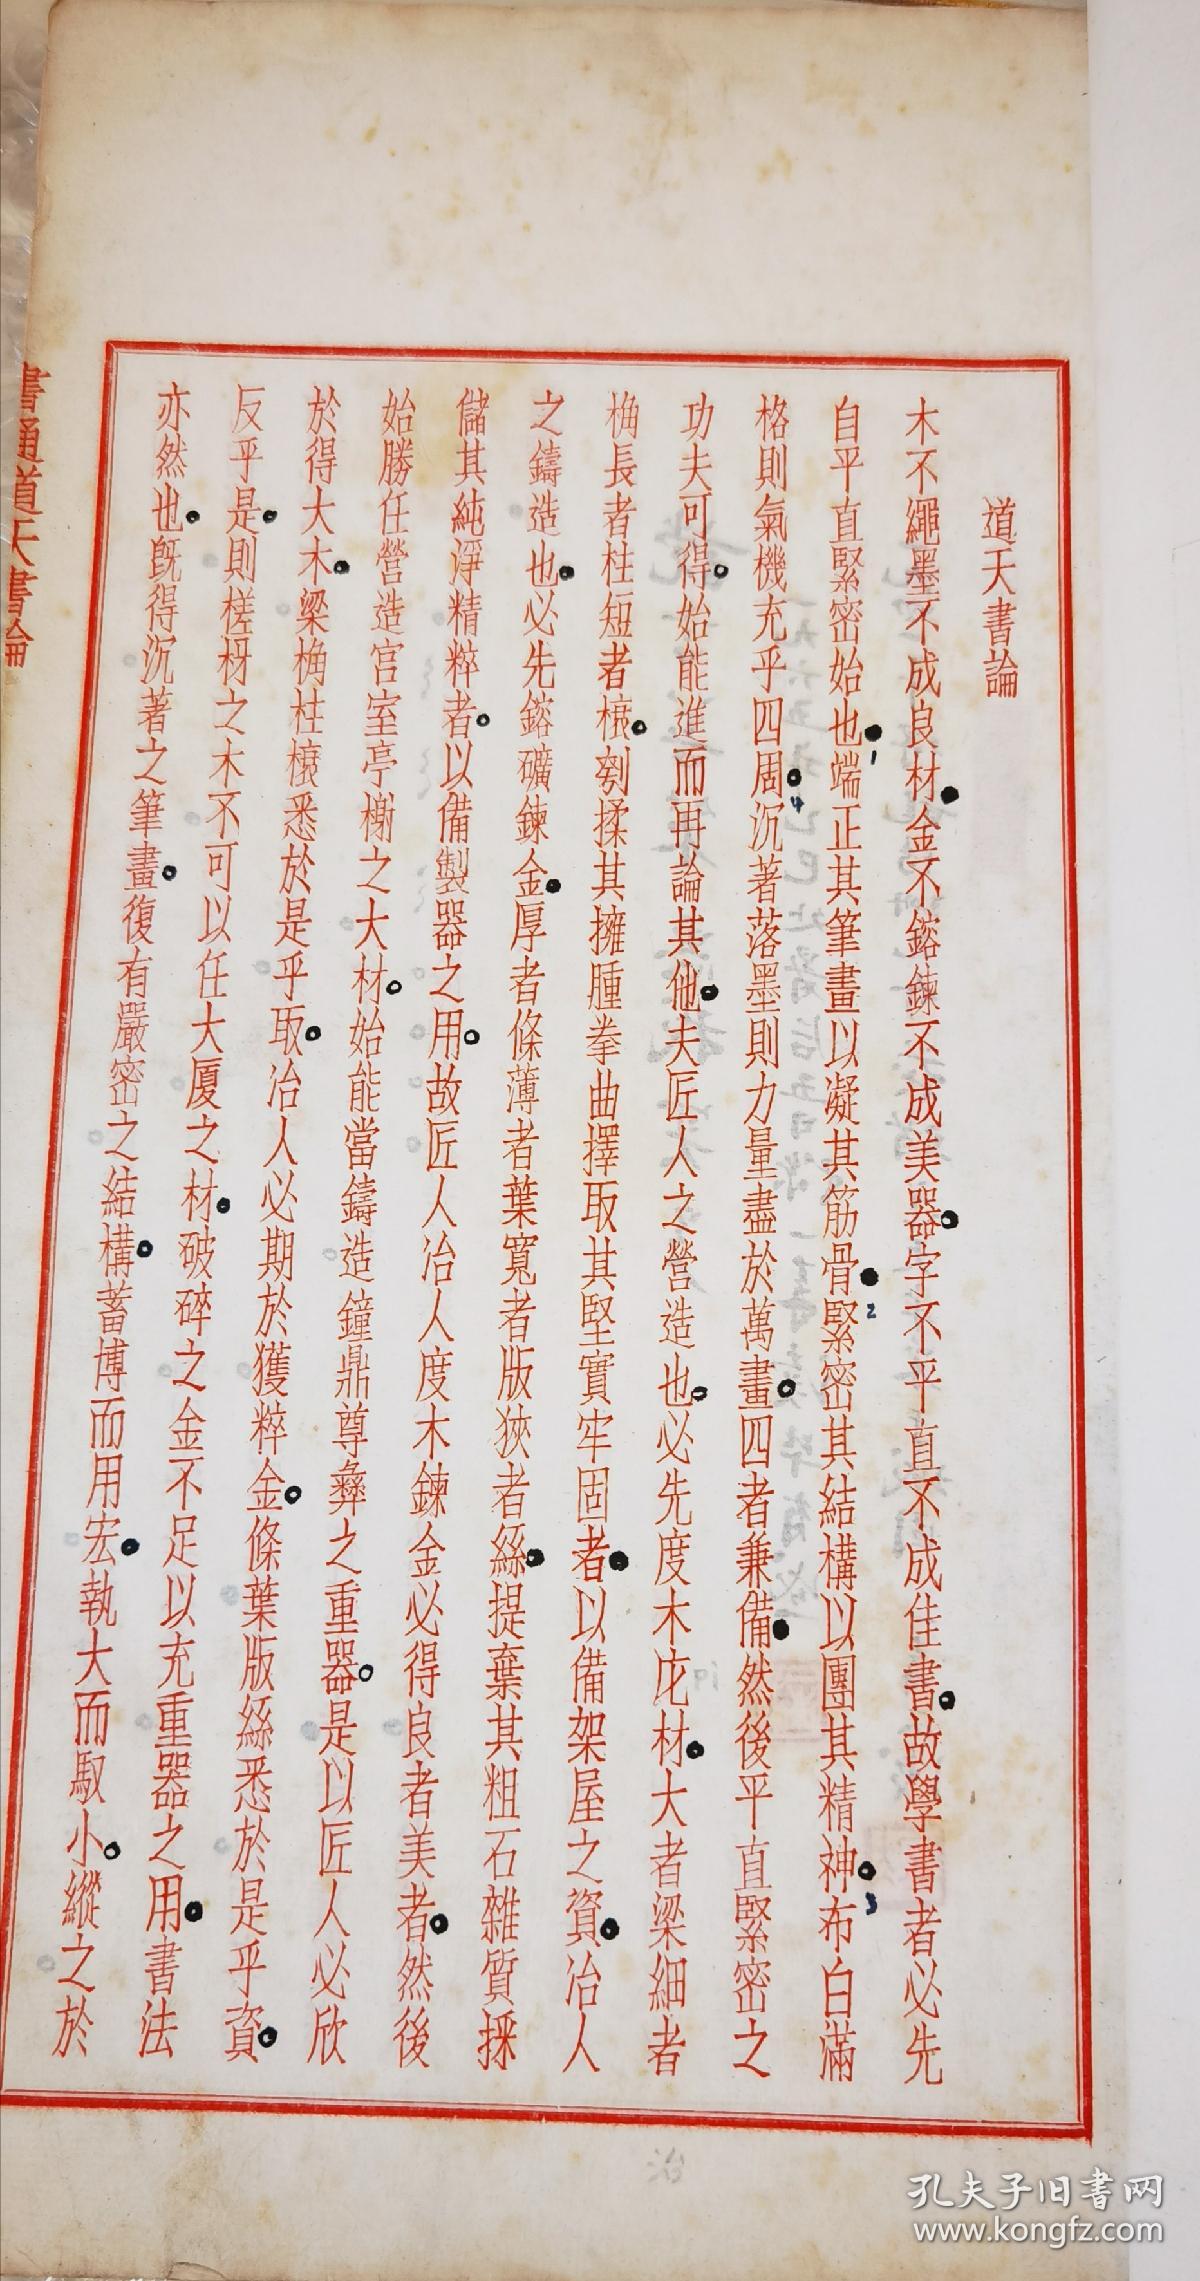 道天書論
木不繩墨不成良材金不鎔鍊不成美器字不平直不成佳書故學書者必先
自平直緊密始也端正其筆畫以凝其筋骨緊密其結構以團其精神布白滿
格則氣機充乎四周沉著落墨則力量盡於萬畫四者兼備然後平直緊密之
功夫可得始能進而再論其他夫匠人之營造也必先度木庀材大者梁細者
桷長者柱短者榱剜揉其擁腫拳曲擇取其堅實牢固者以備架屋之資冶人
之鑄造也必先鎔礦鍊金厚者條薄者葉寬者版狹者絲提棄其粗石雜質採
儲其純淨精粹者以備製器之用故匠人冶人度木鍊金必得良者美者然後
始勝任營造宮室亭榭之大材始能當鑄造鐘鼎尊彝之重器是以匠人必欣
於得大木梁桷柱榱悉於是乎取冶人必期於獲粹金條葉版絲悉於是乎資
反乎是則槎枒之木不可以任大廈之材破碎之金不足以充重器之用書法
亦然也既得沉著之筆畫復有嚴密之結構蓄博而用宏執大而馭小縱之於
書通道天書論
1
2
3
4
孔夫子旧书网
www.kongfz.com